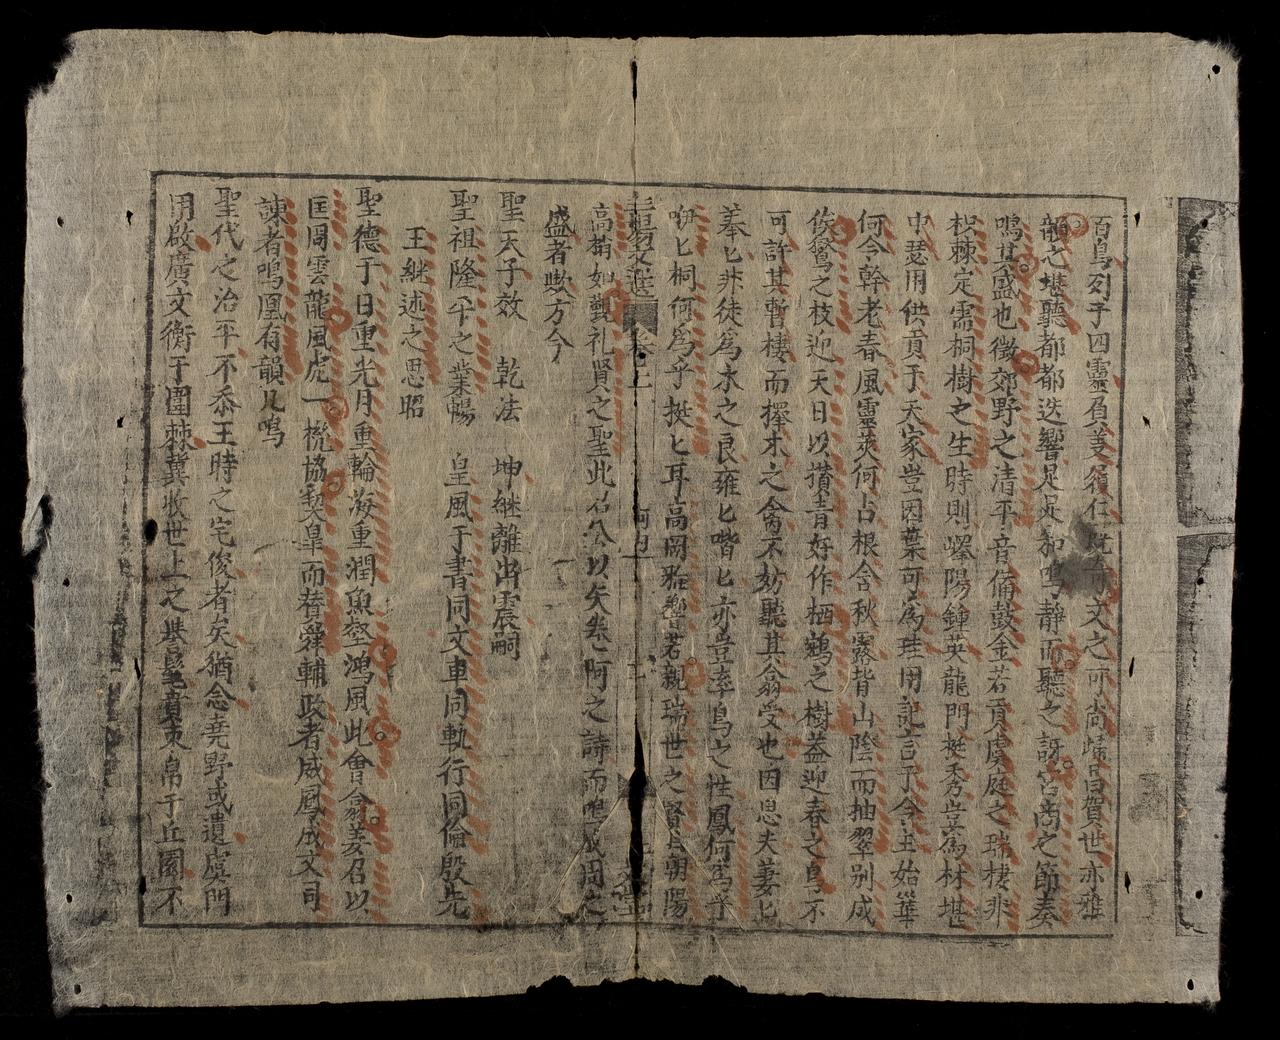 百鳥列于四靈負義履仁既奇文之可尚歸昌賀世亦雅
韻之堪聽都都迭響足足和鳴靜而聽之訝宮商之節奏
鳴其盛也徵郊野之清平音備鼓金若貢虞庭之瑞棲非
枳棘定需桐樹之生時則嶧陽鍾英龍門挺秀豈爲材堪
中瑟用供貢于天家豈因葉可爲珪用記言于令主始華
何令幹老春風靈莢何占根含秋露揩山陰而抽翠别成
佚鸞之枝迎天日以攢青好作栖鵷之樹葢迎春之鳥不
可許其暫棲而擇木之禽不妨聽其翕受也因思夫妻匕
萋奉匕非徒爲木之良雍匕喈匕亦豈率鳥之性鳳何爲乎
哕匕桐何爲乎挺匕耳高岡雅響若親瑞世之賢旨朝陽
高梢如覲礼賢之聖此召公以矢卷阿之詩而鳴成周之
盛者歟方今
聖天子效 乾法 坤継離出震嗣
聖祖隆平之業暢 皇風于書同文車同軌行同倫殷先
王継述之思昭
聖德于日重光月重輪海重潤魚壑鴻風此會翕姜召以
匡周雲龍風虎一梡協契皐而賛舜輔政者威鳳成文司
諫者鳴凰有韻凡鳴
聖代之治平不忝王時之宅俊者矣猶念堯野或遺虞門
用啟廣文衡于圍棘冀收世上之英髦賁束帛于丘園不